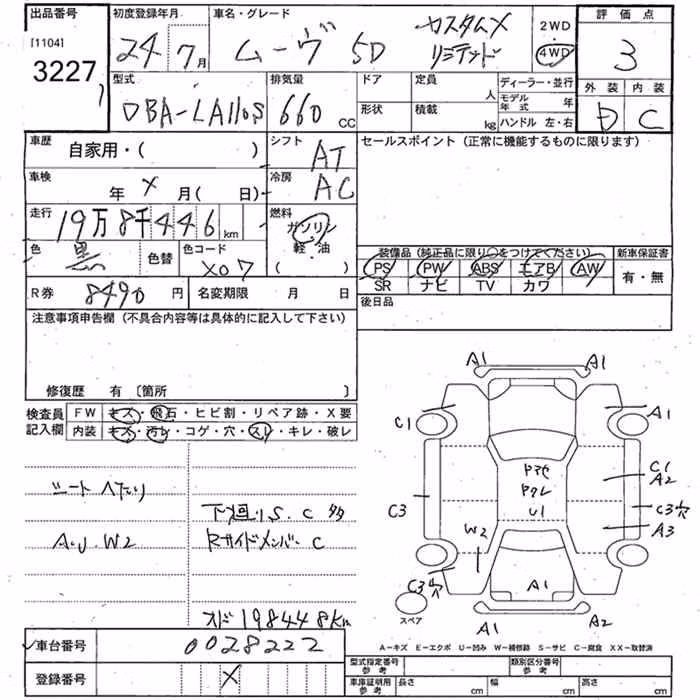 出品番号
[1104]
3227
初度登録年月
24年7月
車名・グレード
ムーヴ 5D カスタムX リミテッド
2WD
4WD
評価点
3
外装 内装
D C
型式
DBA-LA110S
排気量
660 CC
ドア
形状
定員 人
積載 kg
ディーラー・並行
モデル年式 年
ハンドル 左・右
車歴
自家用・( )
車検
年 X 月( 日)
走行
19万8千446 km
色 黒 色替
色コード
X07
シフト
AT
冷房
AC
燃料
ガソリン
軽・油
( )
セールスポイント(正常に機能するものに限ります)
装備品(純正品に限り○をつけてください)
PS PW ABS エアB AW
SR ナビ TV カワ
新車保証書
有・無
後日品
R券 8490 円 名変期限 月 日
注意事項申告欄(不具合内容等は具体的に記入して下さい)
修復歴 有〔箇所 〕
検査員記入欄
FW キズ・飛石・ヒビ割・リペア跡・X要
内装 キズ・汚レ・コゲ・穴・スレ・キレ・破レ
シートヘタリ
A.U.W2
下廻りS.C多
RサイドメンバーC
オド198448km
A1 A1
C1 A1
C1
A2
C3 C3穴
A3
W2
C3穴
A1
A1 A2
U1
スペア
A-キズ E-エクボ U-凹み W-補修跡 S-サビ C-腐食 XX-取替済
車台番号 0028222
登録番号 X
型式指定番号 参考
類別区分番号 参考
車庫証明用 参考
長さ cm 幅 cm 高さ cm